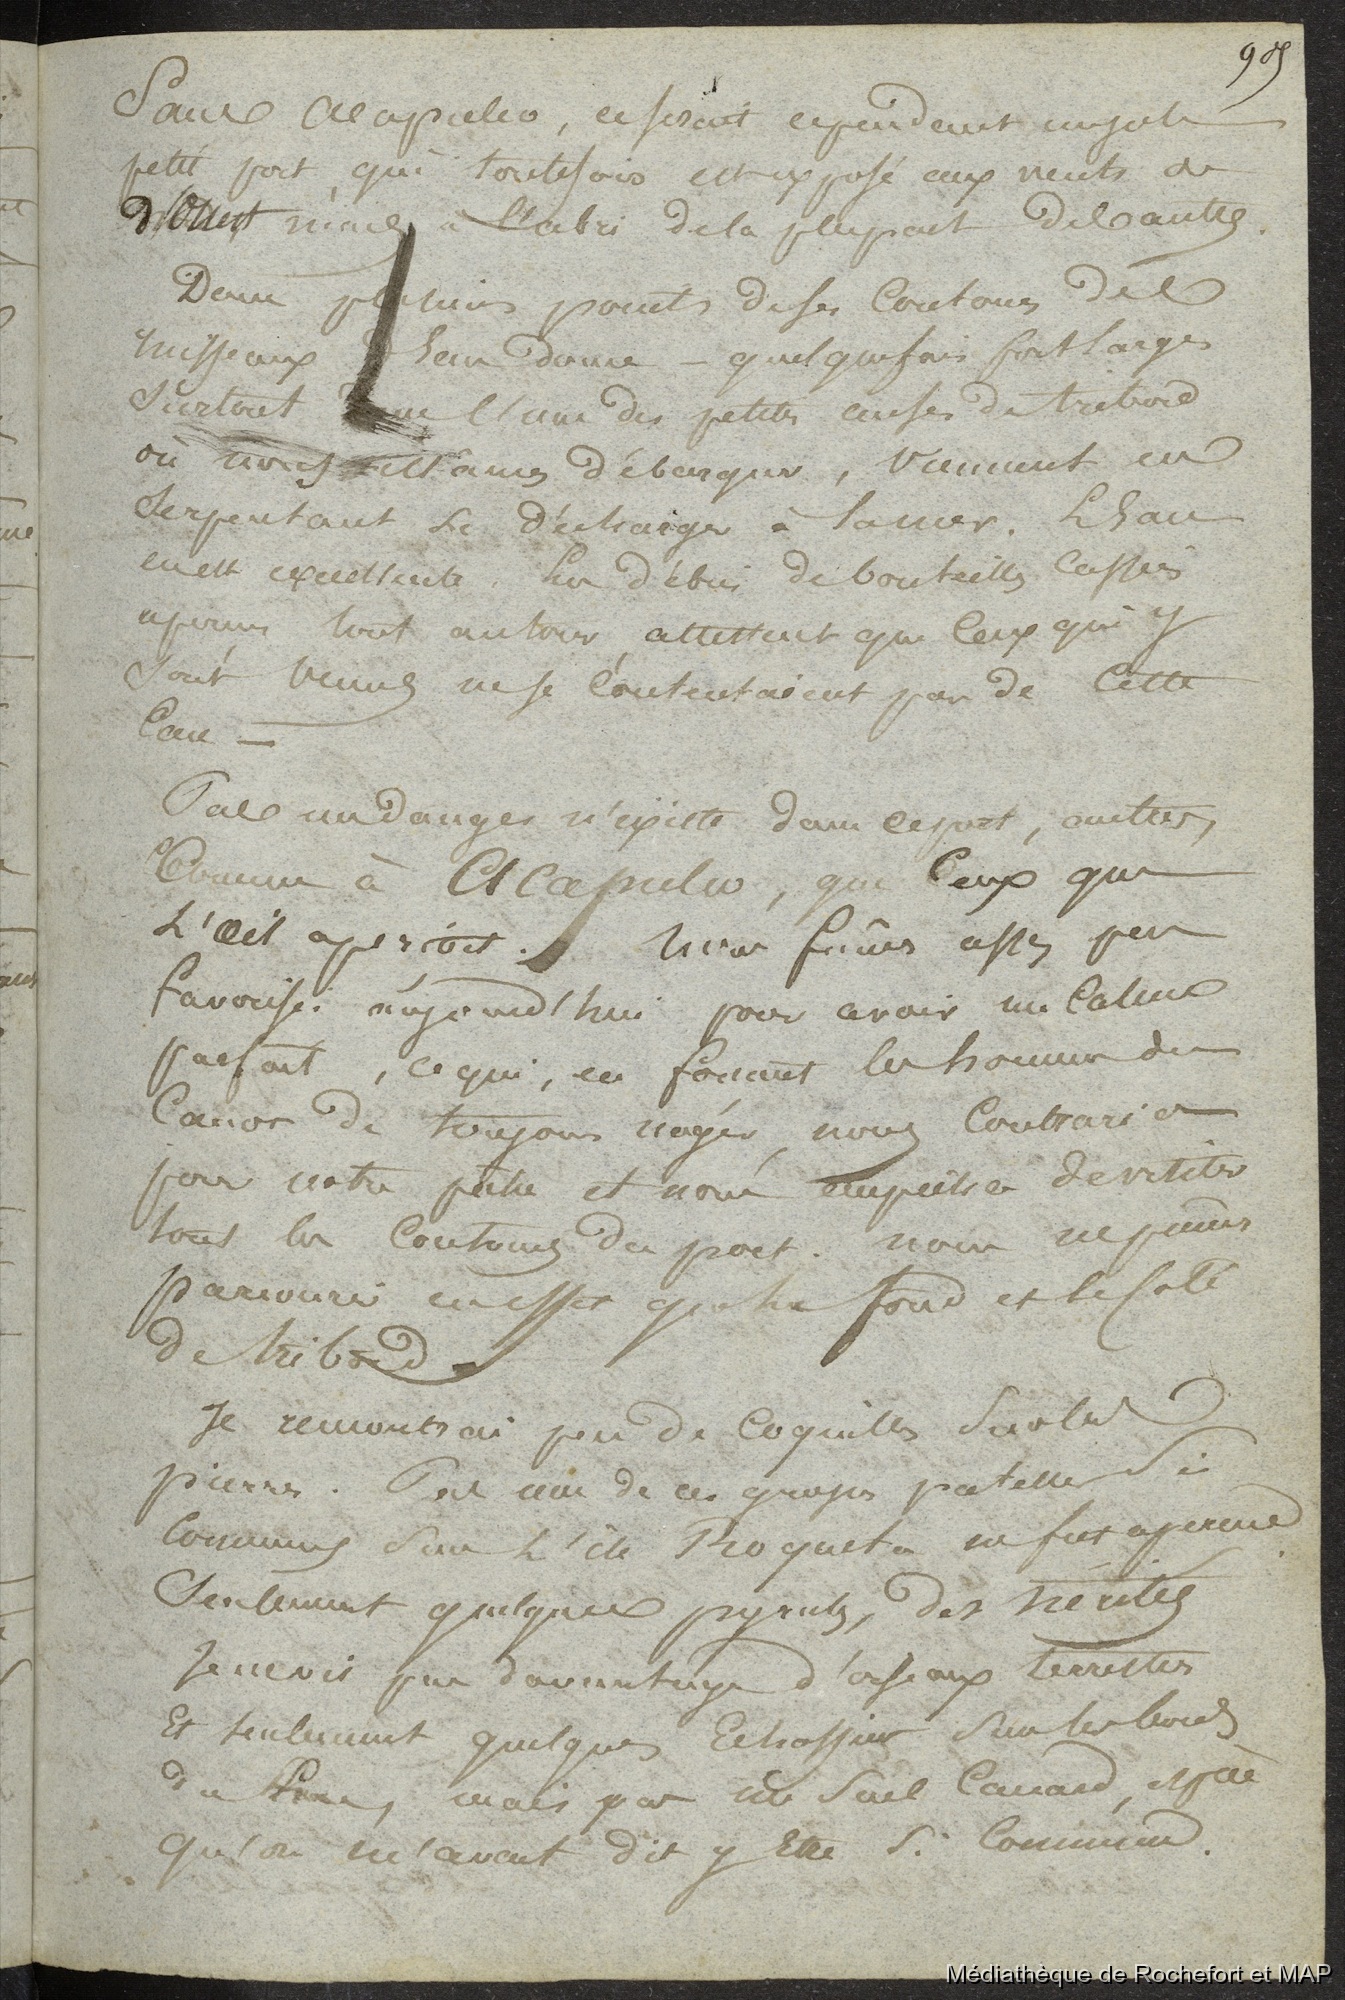 95
Sans Acapulco, ce serait cependant un joli
petit port qui toutefois est exposé aux vents de
d'Ouest mais à l'abri de la plupart des autres.
Dans plusieurs points de ses Contours des
ruisseaux d'eau douce – quelquefois fort larges
surtout dans l'une des petites anses de tribord
où nous allâmes débarquer, viennent en
Serpentant se décharger à la mer. L'eau
en est excellente. Les débris de bouteilles cassées
epars tout autour, attestent que Ceux qui y
sont venus ne se Contentaient pas de Cette
Eau —
Pas un danger n'existe dans ce port, autres,
Comme à Acapulco, que Ceux que
L'œil aperçoit. Nous fûmes assez peu
favorisés aujourd'hui pour avoir un Calme
parfait, ce qui, en forçant les hommes du
Canot de toujours nager, nous Contraria
pour notre pêche et nous empêcha de visiter
tous les Contours du port. nous ne pûmes
parcourir en effet que le fond et le Coté
de tribord
Je remontrai peu de Coquilles sur les
pierres. Pas une de ces grosses patelles si
Communes sur L'île Roqueta ne fut aperçue
Seulement quelques pyrules, des nérites
Je ne vis pas davantage d'oiseaux terrestres
Et seulement quelques Echassiers sur les bords
du mais pas un seul Canard, espèce
qu'on m'avait dit y Etre si Commune.
Médiathèque de Rochefort et MAP